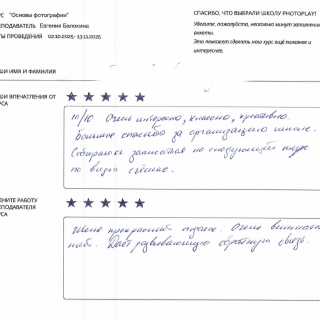 РС "Основы фотографии"
СПАСИБО, ЧТО ВЫБРАЛИ ШКОЛУ PHOTOPLAY!
ПОДАВАТЕЛЬ Евгения Балюкина
Уделите, пожалуйста, несколько минут заполнению
анкеты.
ТЫ ПРОВЕДЕНИЯ 02.10.2025- 13.11.2025
Это поможет сделать наш курс ещё полезнее и
интереснее.
ШИ ИМЯ И ФАМИЛИЯ
ШИ ВПЕЧАТЛЕНИЯ ОТ
РСА
10/10 Очень интересно, классно, креативно.
Большое спасибо за организацию школе.
Собираюсь записаться на следующий курс
по видео съёмке.
ЕНИТЕ РАБОТУ
ПОДАВАТЕЛЯ
РСА
Женя прекрасный педагог. Очень внимател
Даёт развивающую обратную связь.